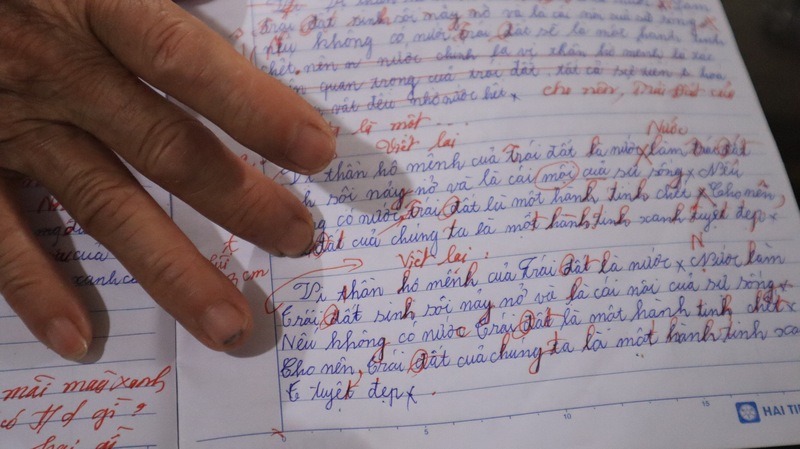 Trái đất sinh sôi nảy nở và là cái nôi của sự sống
nếu không có nước trái đất sẽ là một hành tinh
chết, nên n nước chính là vị thần hộ mệnh
quan trọng của trái đất, tất cả sự
vật đều nhờ nước hết cho nên, Trái Đất của
là một ...
Viết lại
Nước
Vì thần hộ mệnh của Trái đất là nước làm trái đất
h sôi nảy nở và là cái môi của sử sống Nếu
có nước, Trái đất là một hành tinh chết Cho nên,
đất của chúng ta là một hành tinh xanh tuyệt đẹp
Viết lại :
N
Vì thần hộ mếnh của Trái đất là nước Nước làm
trái đất sinh sôi nảy nở và là cái nôi của sử sống
Nếu không có nước trái đất là một hành tinh chết
Cho nên, trái đất của chúng ta là một hành tinh xa
t tuyệt đẹp
cm
mãi mãi xanh
có # d gì ?
0 5 10 15
HẢI TI